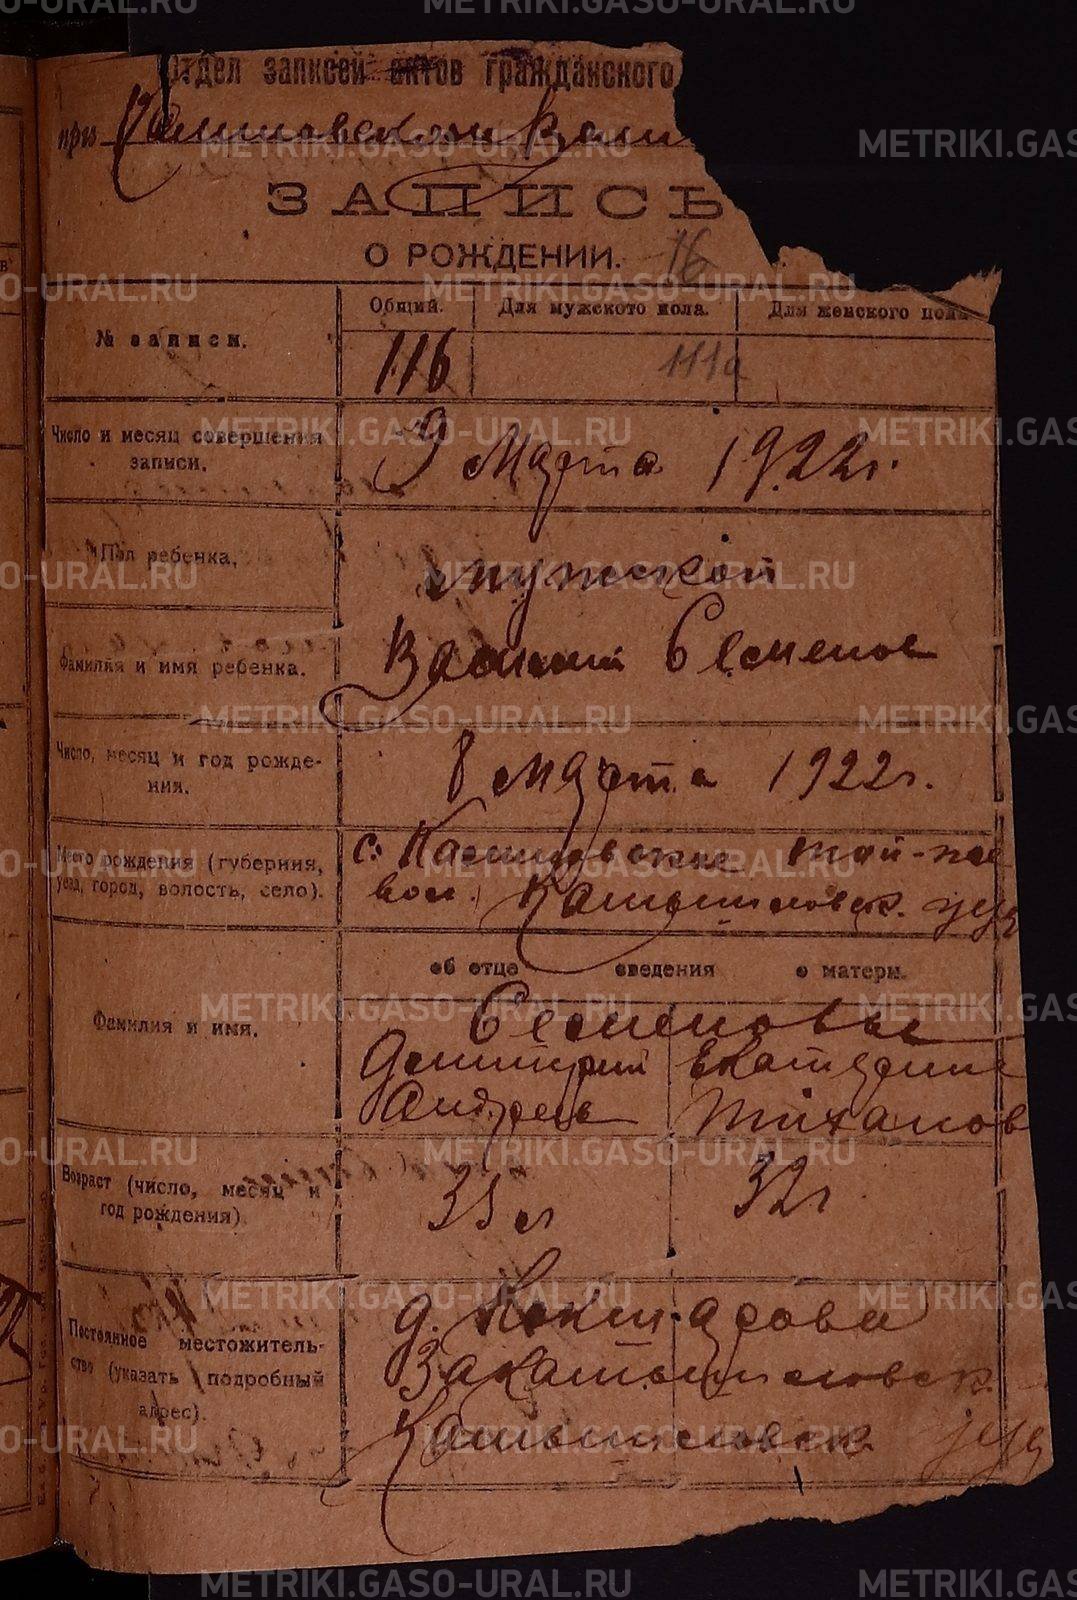 Отдел записей актов гражданского
при Калиновской Волис
ЗАПИСЬ
О РОЖДЕНИИ. 16
№ записи.
Общий. Для мужского пола. Для женского пола
116 111а
Число и месяц совершения
записи.
9 Марта 1922г.
Пол ребенка.
мужской
Фамилия и имя ребенка.
Василий Семенов
Число, месяц и год рожде-
ния.
8 Марта 1922г.
Место рождения (губерния,
уезд, город, волость, село).
с. Калиновское той-же
вол. Камышловск. уезд
об отце сведения о матери.
Фамилия и имя.
Семеновы
Димитрий Екатерина
Андреев Тиханов
Возраст (число, месяц и
год рождения)
35 л 32 г
Постоянное местожитель-
ство (указать подробный
адрес).
д.
Закамышловск.
Камышловск уезд
METRIKI.GASO-URAL.RU